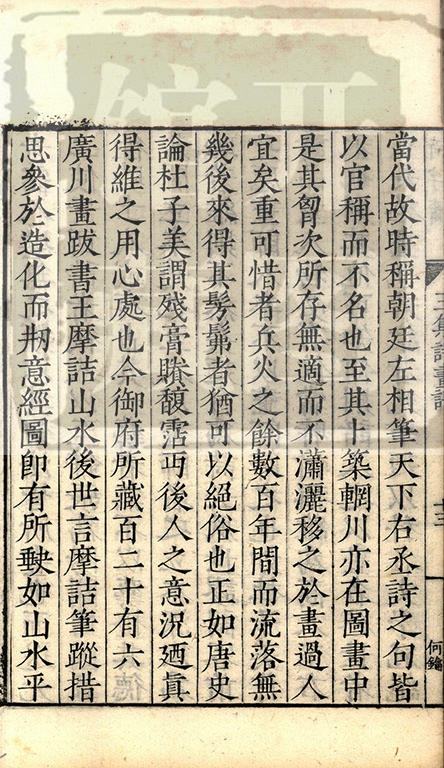 當代故時稱朝廷左相筆天下右丞詩之句皆
以官稱而不名也至其卜築輞川亦在圖畫中
是其胷次所存無適而不瀟灑移之於畫過人
宜矣重可惜者兵火之餘數百年間而流落無
幾後來得其髣髴者猶可以絕俗也正如唐史
論杜子美謂殘膏賸馥霑丐後人之意況廼眞
得維之用心處也今御府所藏百二十有六
廣川畫跋書王摩詰山水後世言摩詰筆蹤措
思參於造化而剏意經圖卽有所缺如山水平
何鑰